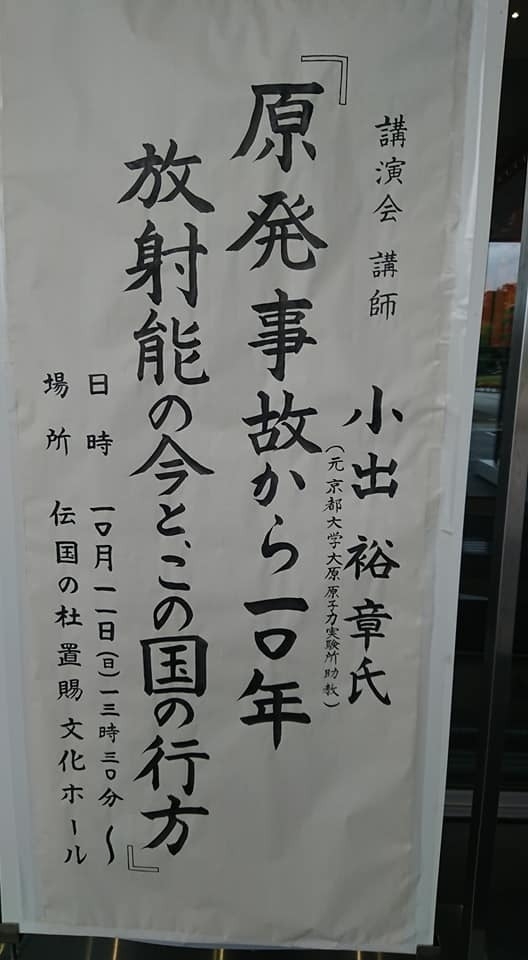 講演会 講師
小出 裕章氏
(元 京都大学大原原子力実験所助教)
『原発事故から一〇年
放射能の今と、この国の行方』
日時 一〇月一一日(日)一三時三〇分〜
場所 伝国の杜 置賜文化ホール